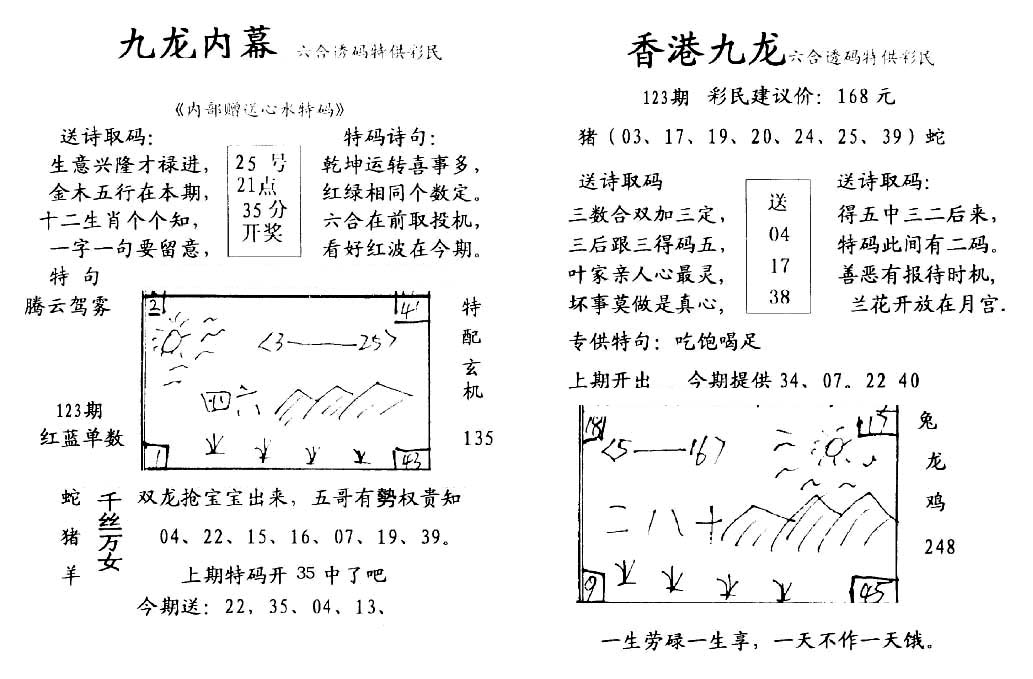 九龙内幕 六合透码特供彩民
《内部赠送心水特码》
送诗取码：
生意兴隆才禄进，
金木五行在本期，
十二生肖个个知，
一字一句要留意，
25 号
21点
35分
开奖
特码诗句：
乾坤运转喜事多，
红绿相同个数定。
六合在前取投机，
看好红波在今期。
特 句
腾云驾雾
123期
红蓝单数
2
41
<3——25>
四六
1
43
特
配
玄
机
135
蛇
猪
羊
千丝万女
双龙抢宝宝出来，五哥有勢权贵知
04、22、15、16、07、19、39。
上期特码开 35 中了吧
今期送：22，35、04、13、
香港九龙 六合透码特供彩民
123期 彩民建议价：168 元
猪（03、17、19、20、24、25、39）蛇
送诗取码
三数合双加三定，
三后跟三得码五，
叶家亲人心最灵，
坏事莫做是真心，
送
04
17
38
送诗取码：
得五中三二后来，
特码此间有二码。
善恶有报待时机，
兰花开放在月宫.
专供特句：吃饱喝足
上期开出 今期提供 34、07。22 40
18
<5——16>
二八十
9
45
兔
龙
鸡
248
一生劳碌一生享，一天不作一天饿。